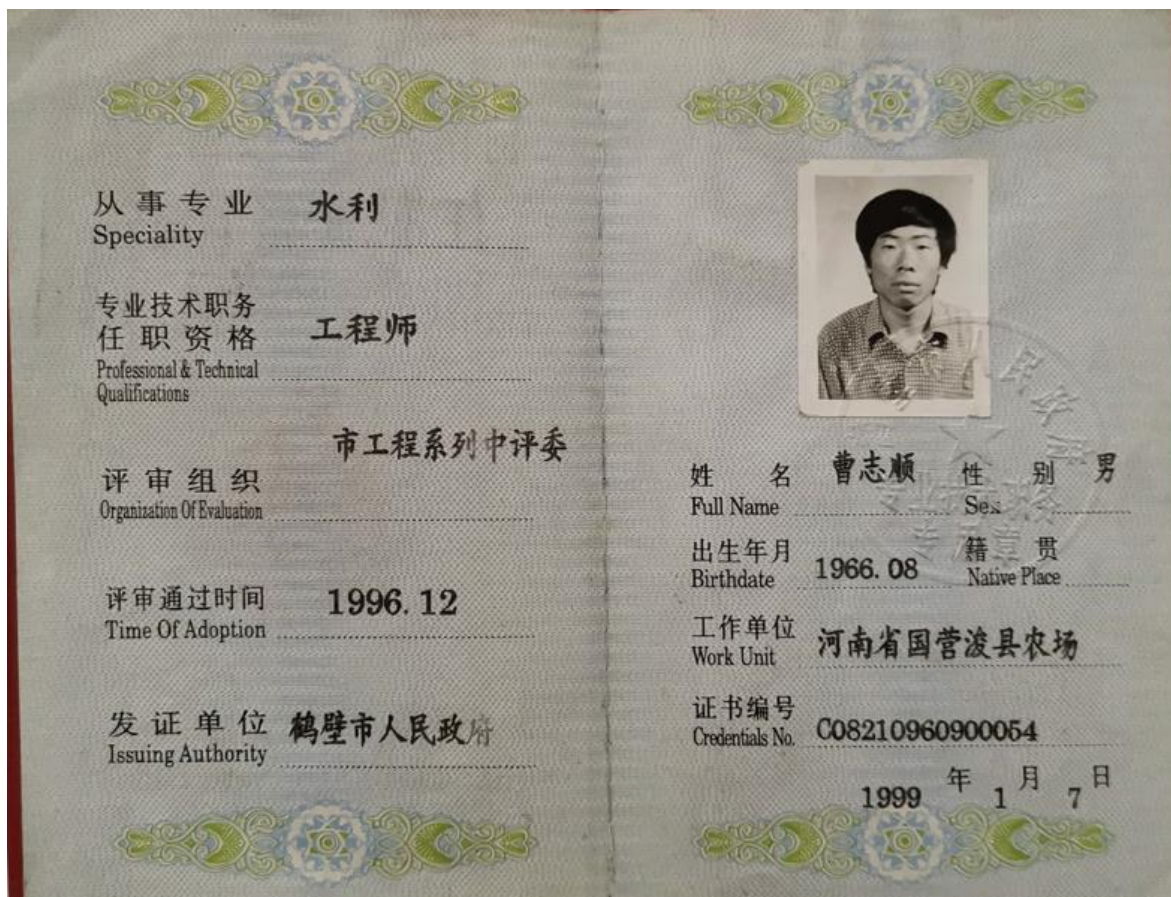 从事专业 水利
Speciality
专业技术职务
任职资格 工程师
Professional & Technical
Qualifications
市工程系列中评委
评审组织
Organization Of Evaluation
评审通过时间 1996.12
Time Of Adoption
发证单位 鹤壁市人民政府
Issuing Authority
姓名 曹志顺 性别 男
Full Name Sex
出生年月 1966.08 籍贯
Birthdate Native Place
工作单位 河南省国营浚县农场
Work Unit
证书编号 C08210960900054
Credentials No.
1999 年 1 月 7 日